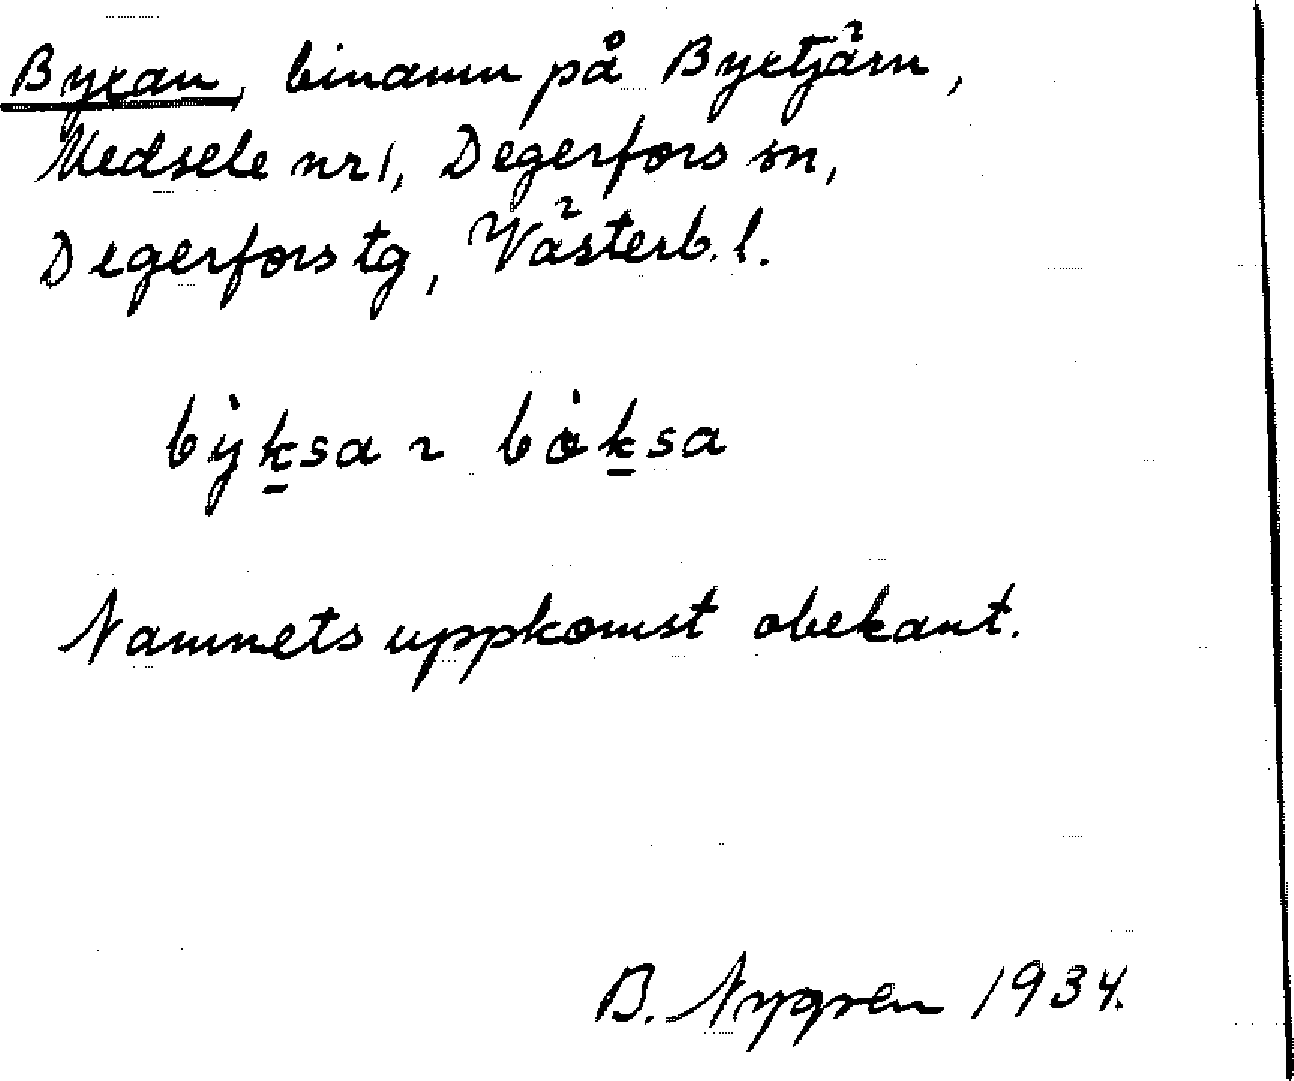 Byxan, binamn på Byxtjärn,
Medsele nr 1, Degerfors sn,
Degerfors tg, Västerb. l.
bỳk̠sa ~ bø̀k̠sa
Namnets uppkomst obekant.
B. Nygren 1934.